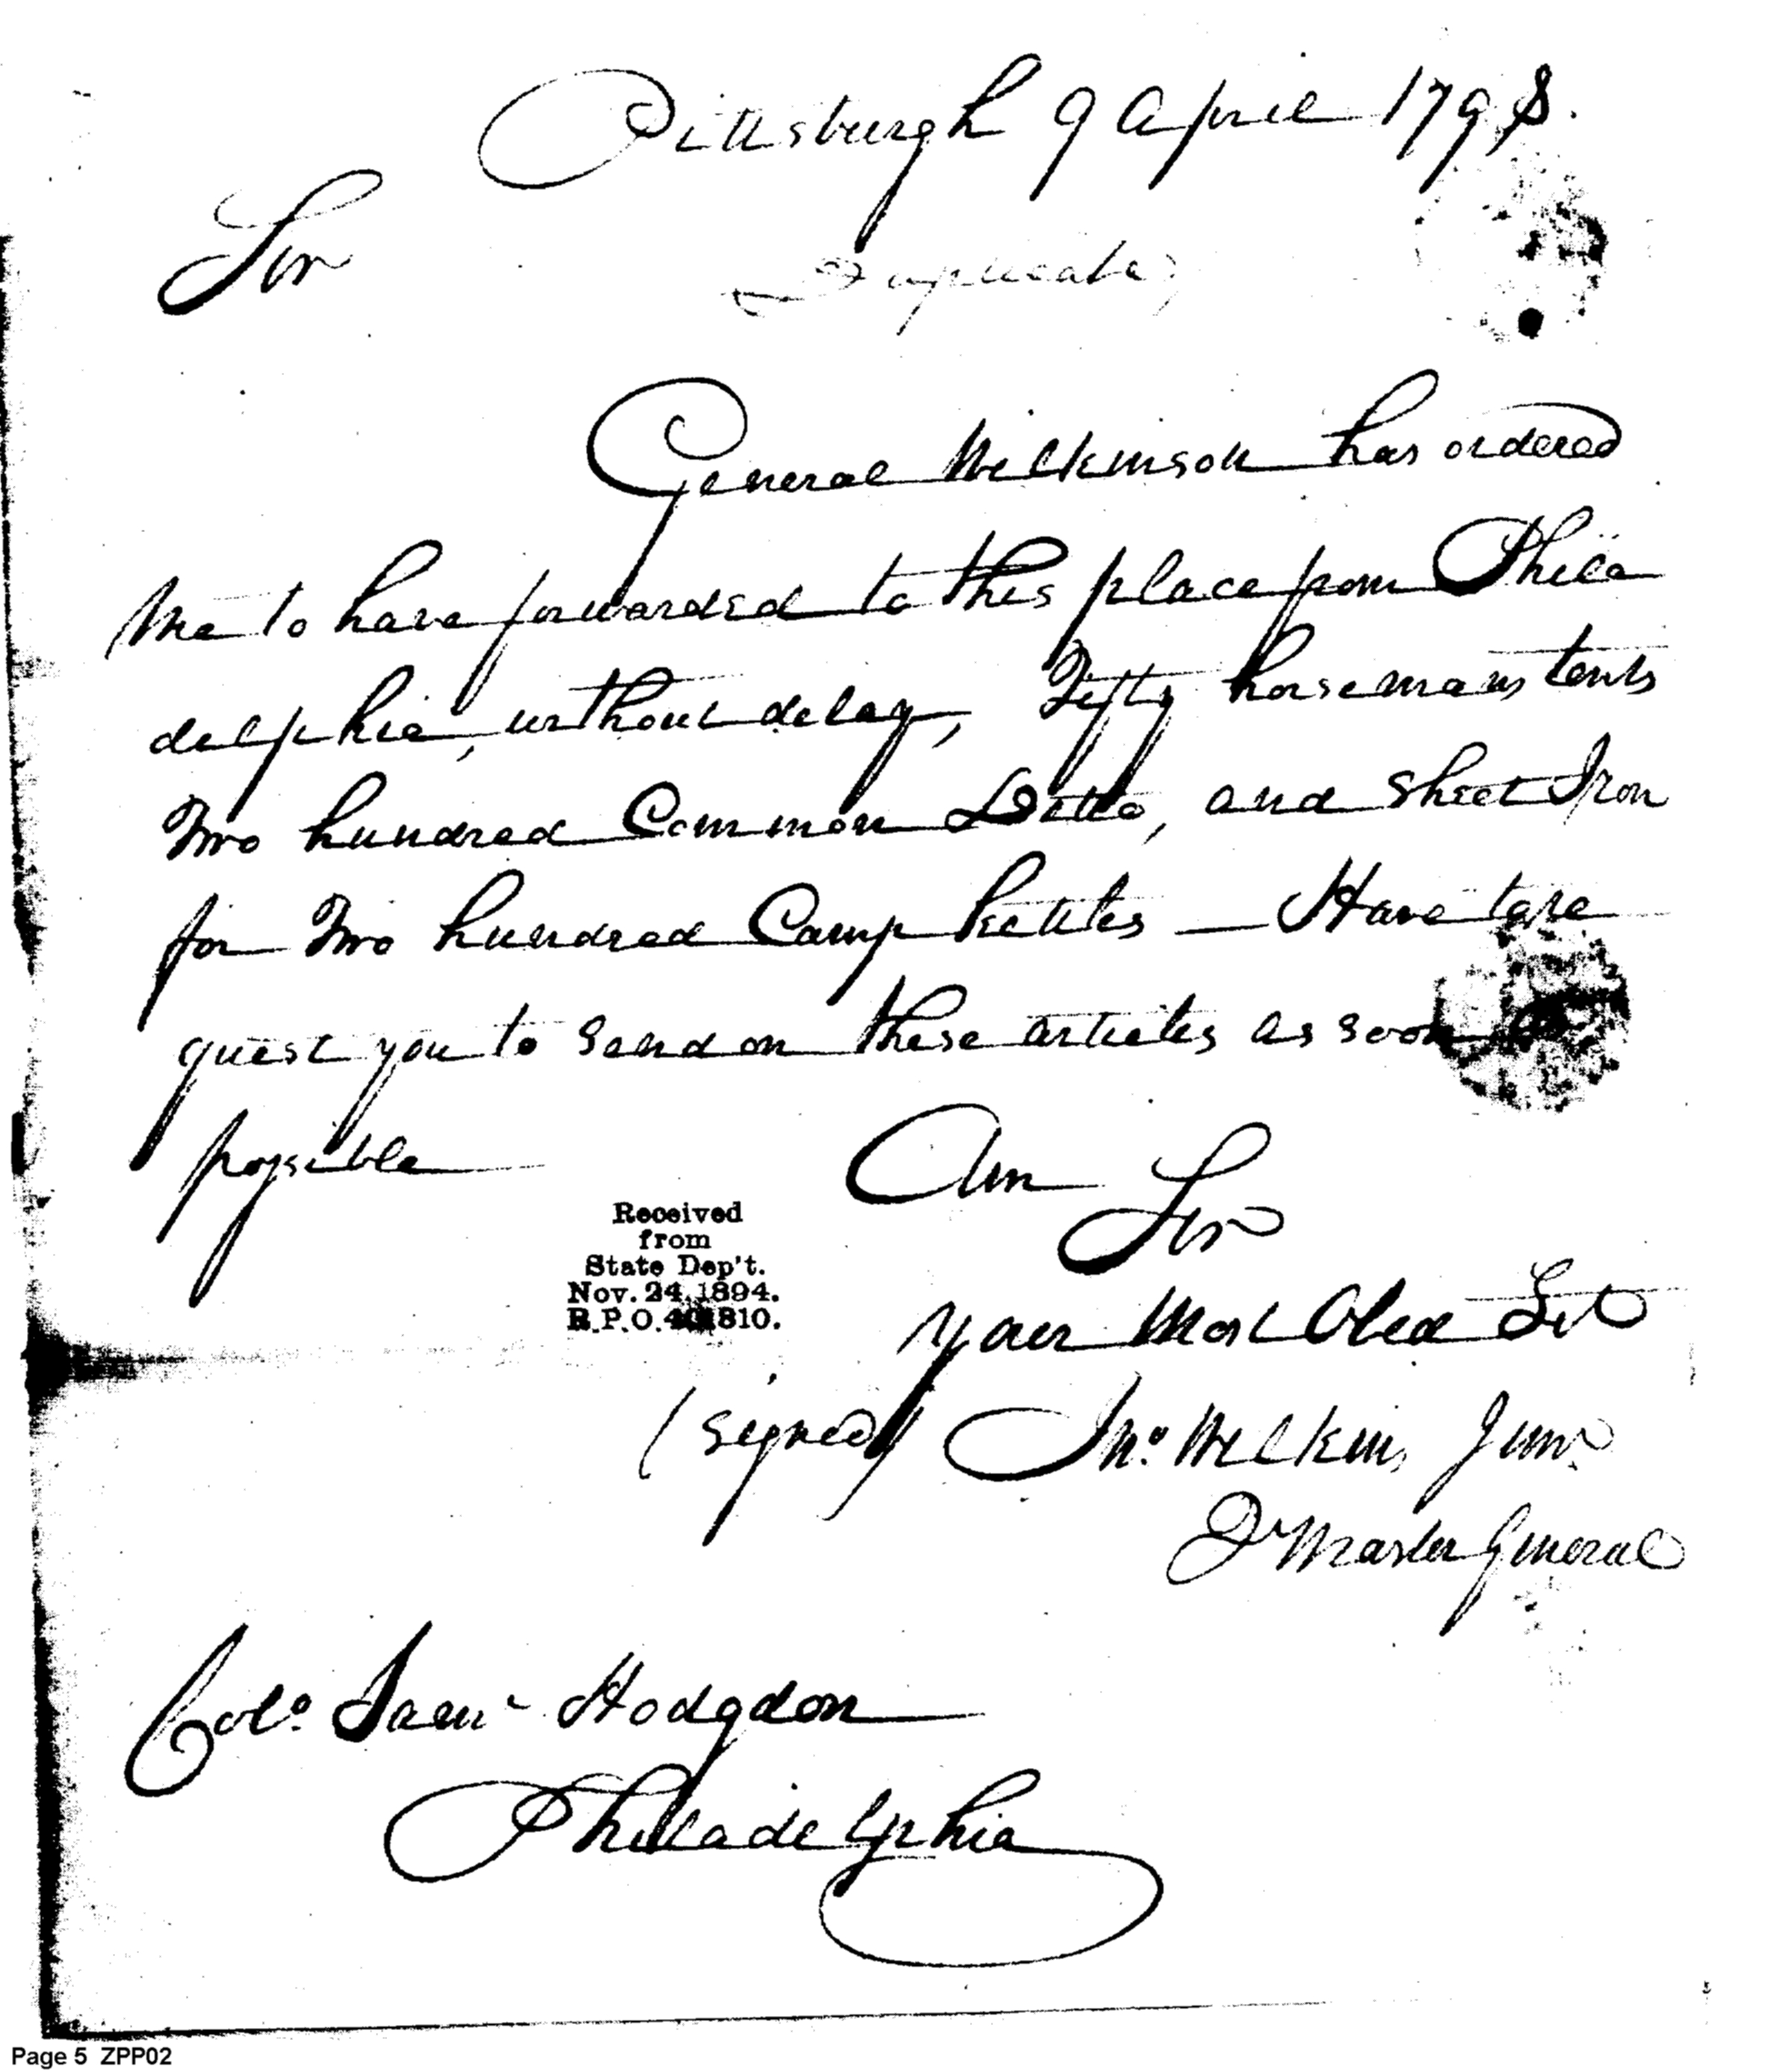 Pittsburgh 9 April 1798.
Sir
(Duplicate)
General Wilkinson has ordered
me to have forwarded to this place from Phila
delphia, without delay, Fifty horsemans tents
Two hundred Common Ditto, and sheet Iron
for Two hundred Camp kettles — Have to re
quest you to send on these articles as soon as
possible
Am
Sir
Your Most Obed Svt
(signed) Jno. Wilkins Junr
Qr Master General
Received
from
State Dep't.
Nov. 24, 1894.
R.P.O. 810.
Colo. Saml Hodgdon
Philladelphia
Page 5 ZPP02